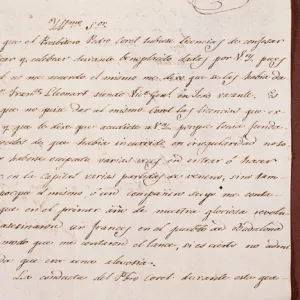 Yllmo. Sor.
que el Presbitero Pedro Corel tubiese licencias de confesar
y celebrar durante beneplacito dadas por V.S.Y. pues
no me acuerdo el mismo me dixo que se las habia da
Franco. Llomart siendo Vic. Gral en Sede vacante. Es
no quiso dar al mismo Corel las licencias que ex
y que le dixe que acudiese a V.S.Y. porque tenia funda
de que habia incurrido en irregularidad
haberse ocupado varias veces en entrar ó hacer
en la capital varias partidas de veneno, sino tam
porque el mismo ó un compañero suyo me conta
que en el primer año de nuestra gloriosa revolu
asesinaron un frances en el pueblo de
modo que me contaron el lance, si es cierto no admi
da que era una alevosia.
La conducta del Pbro Corel durante esta gue